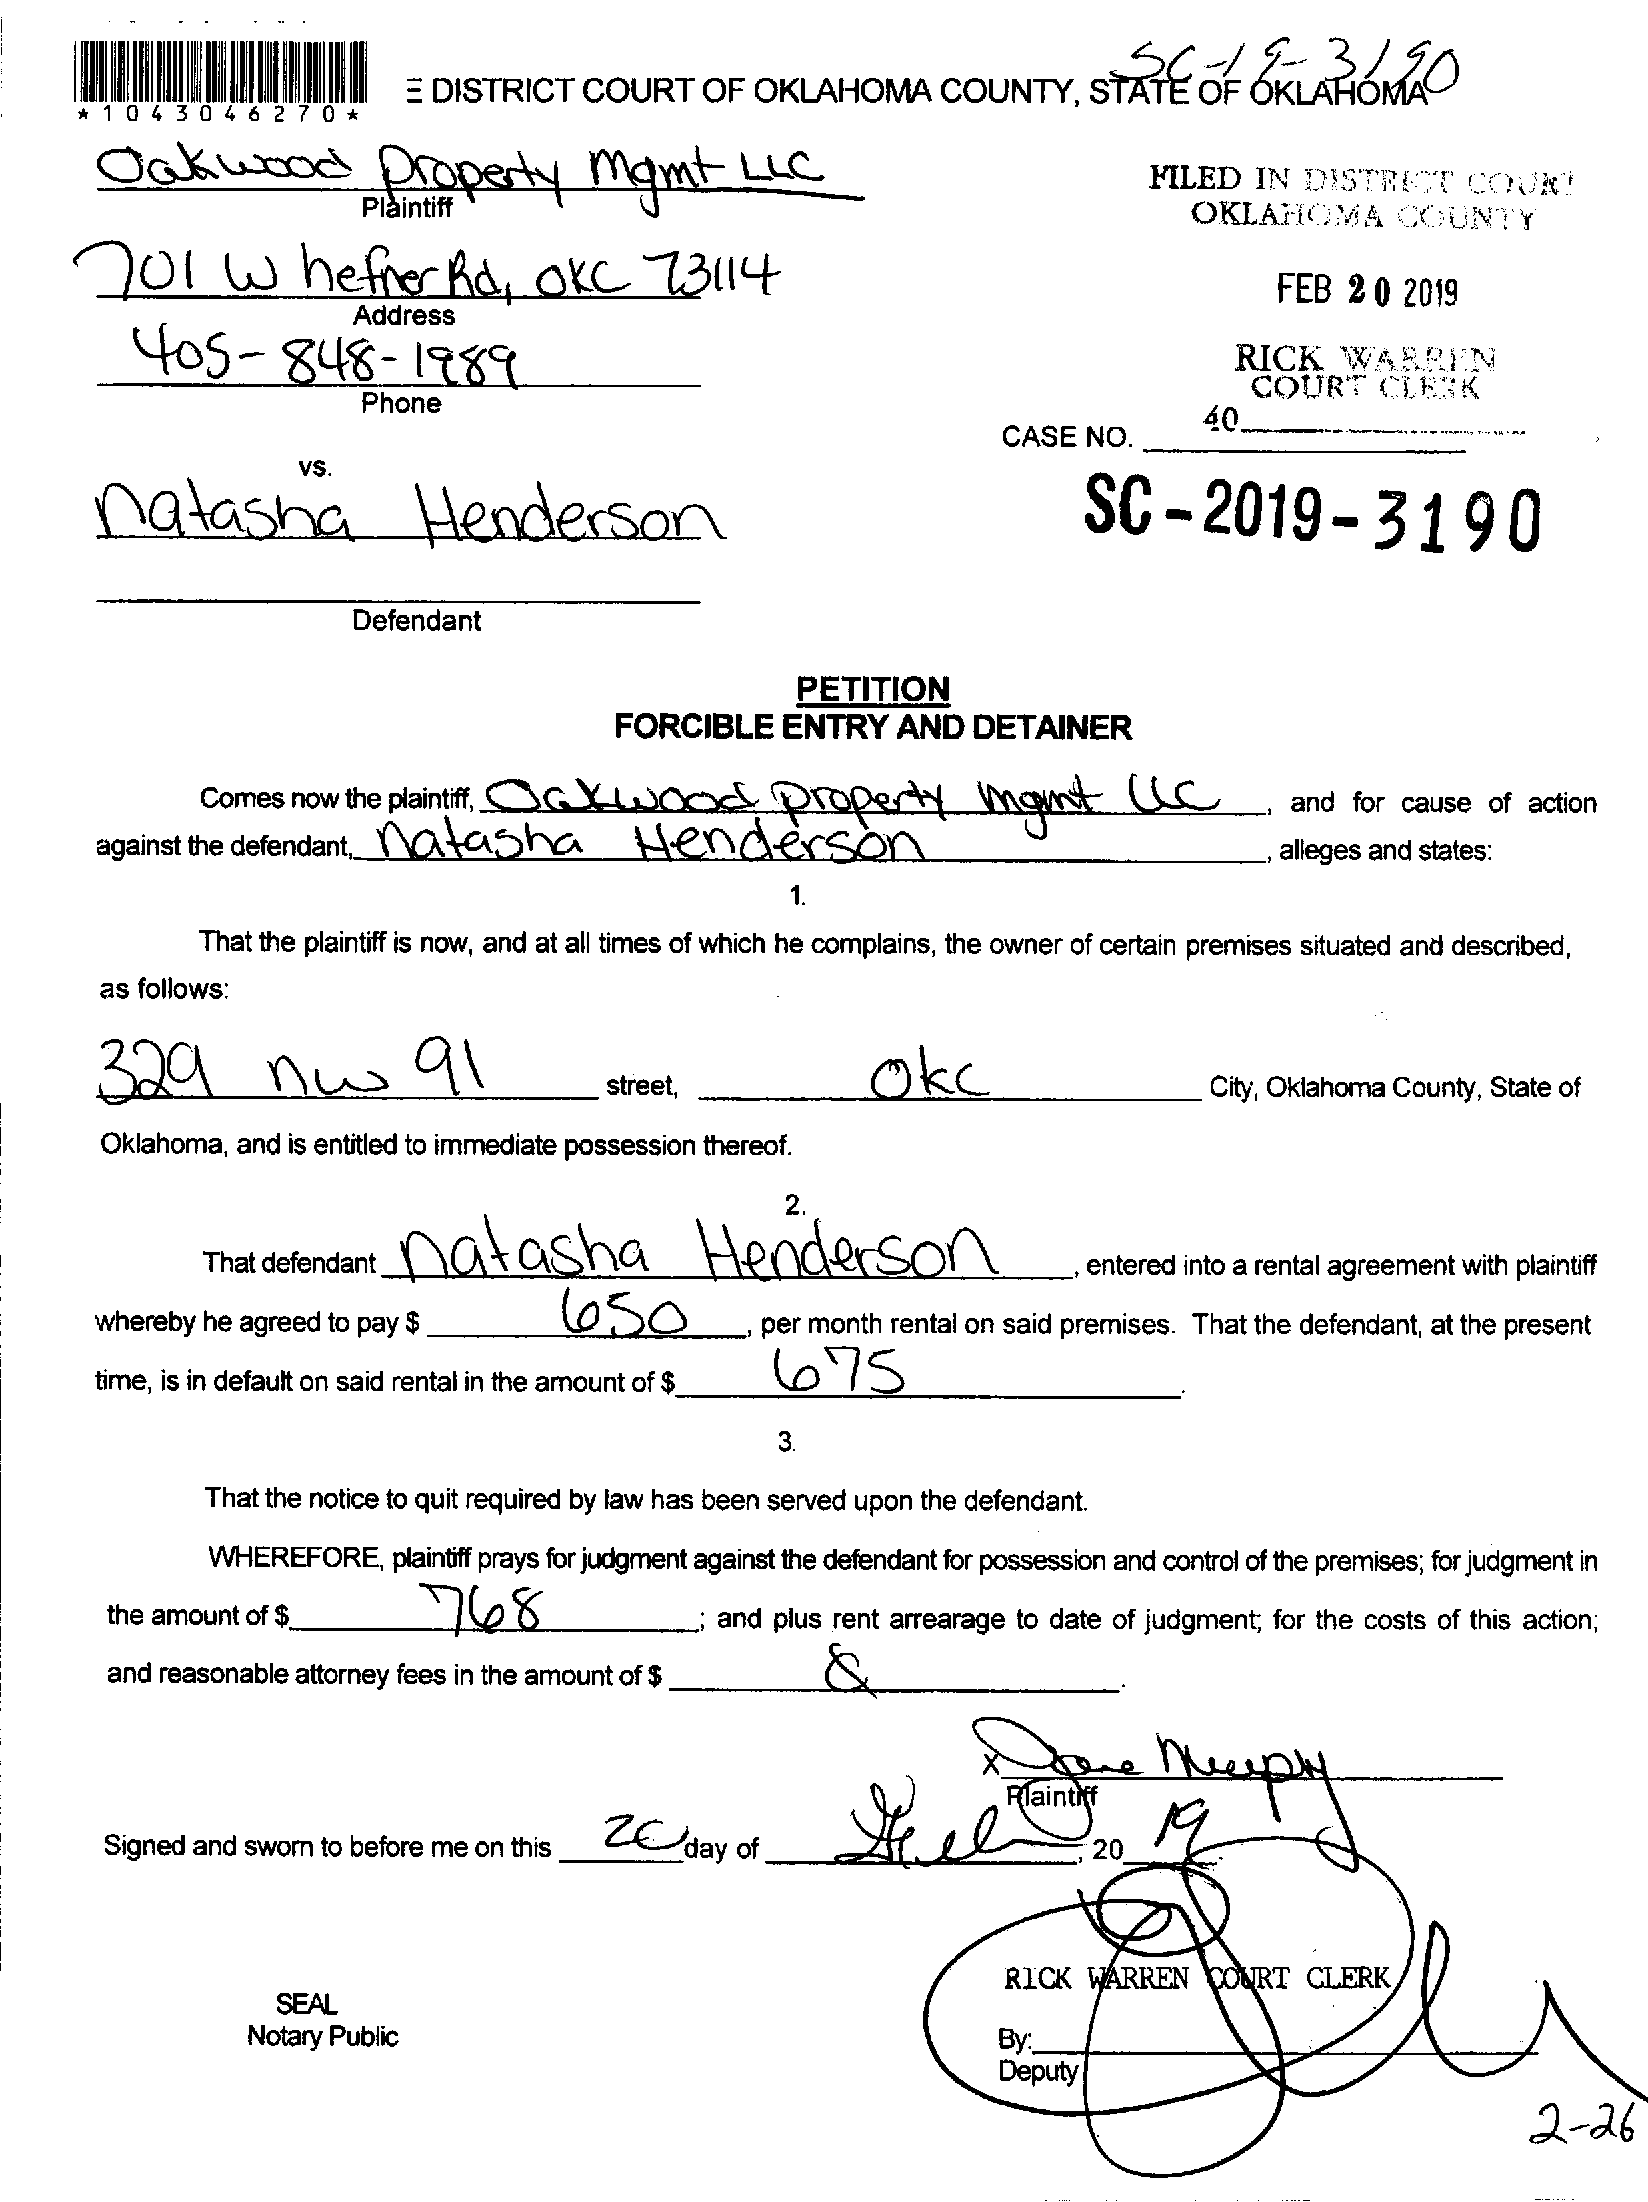 SC-19-3190
E DISTRICT COURT OF OKLAHOMA COUNTY, STATE OF OKLAHOMA
*1043046270*
Oakwood Property Mgmt LLC
Plaintiff
FILED IN DISTRICT COURT
OKLAHOMA COUNTY
701 W hefner Rd, OKC 73114
Address
FEB 20 2019
405-848-1989
Phone
RICK WARREN
COURT CLERK
40
CASE NO.
vs.
natasha Henderson
SC-2019-3190
Defendant
PETITION
FORCIBLE ENTRY AND DETAINER
Comes now the plaintiff, Oakwood property mgmt LLC, and for cause of action
against the defendant, natasha Henderson, alleges and states:
1.
That the plaintiff is now, and at all times of which he complains, the owner of certain premises situated and described,
as follows:
329 nw 91 street, Okc City, Oklahoma County, State of
Oklahoma, and is entitled to immediate possession thereof.
2.
That defendant natasha Henderson, entered into a rental agreement with plaintiff
whereby he agreed to pay $ 650, per month rental on said premises. That the defendant, at the present
time, is in default on said rental in the amount of $ 675.
3.
That the notice to quit required by law has been served upon the defendant.
WHEREFORE, plaintiff prays for judgment against the defendant for possession and control of the premises; for judgment in
the amount of $ 768; and plus rent arrearage to date of judgment; for the costs of this action;
and reasonable attorney fees in the amount of $ .
X Murphy
Plaintiff
Signed and sworn to before me on this 20 day of Feb, 20 19
RICK WARREN COURT CLERK
SEAL
Notary Public
By:
Deputy
2-26